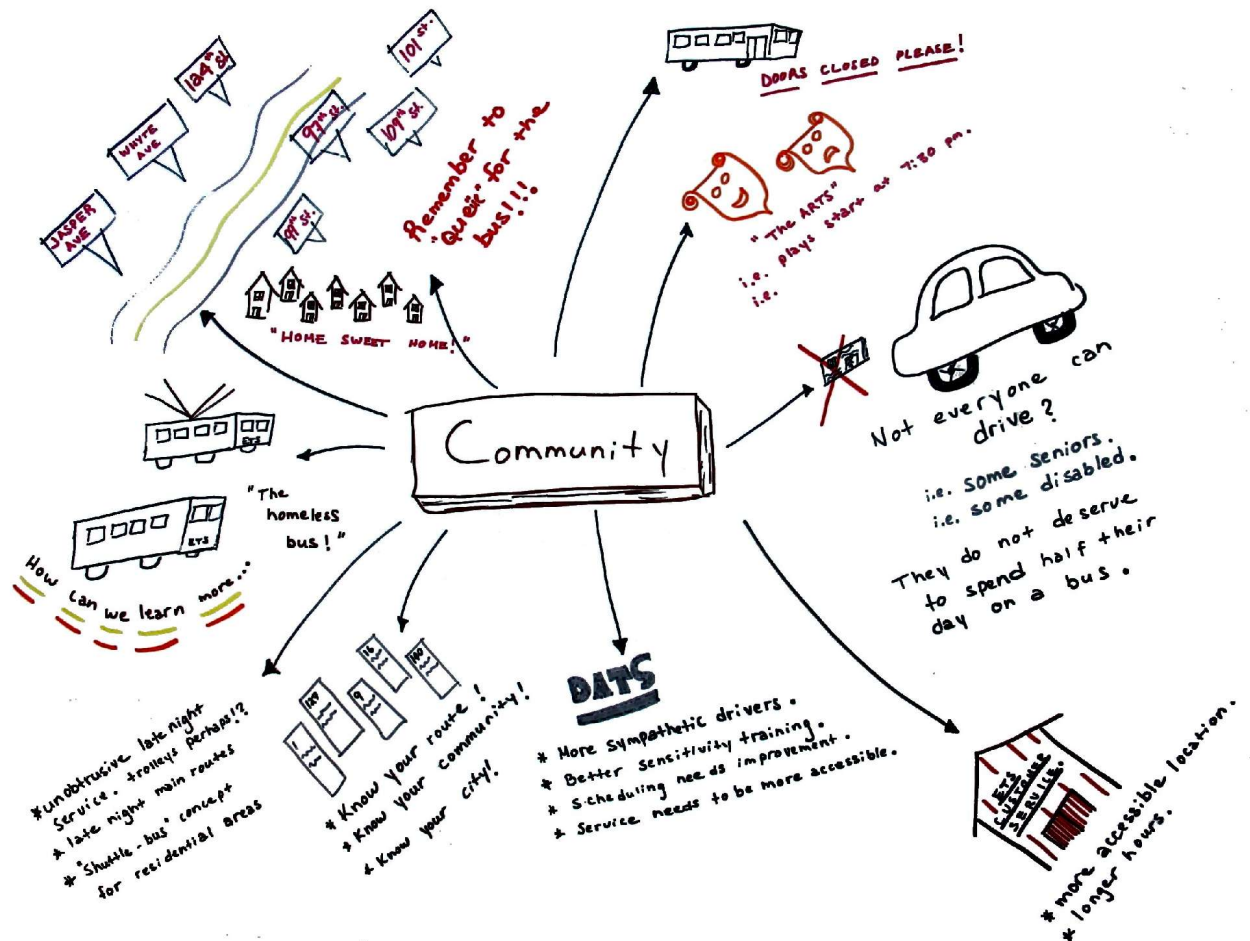 101 St.
124th St.
WHYTE AVE
JASPER AVE
97th St.
109th St.
99th St.
"HOME SWEET HOME!"
Remember to
"QUEUE" for the
bus!!!
DOORS CLOSED PLEASE!
"The ARTS"
i.e. plays start at 7:30 pm.
i.e.
Community
Not everyone can
drive?
i.e. some seniors.
i.e. some disabled.
They do not deserve
to spend half their
day on a bus.
ETS
"The
homeless
bus!"
ETS
How can we learn more...
*unobtrusive late night
service. trolleys perhaps!?
* late night main routes
* "Shuttle-bus" concept
for residential areas
1
129
9
16
100
* Know your route!
* Know your community!
* Know your city!
DATS
* More sympathetic drivers.
* Better sensitivity training.
* Scheduling needs improvement.
* Service needs to be more accessible.
ETS
CUSTOMER
SERVICE.
* more accessible location.
* longer hours.